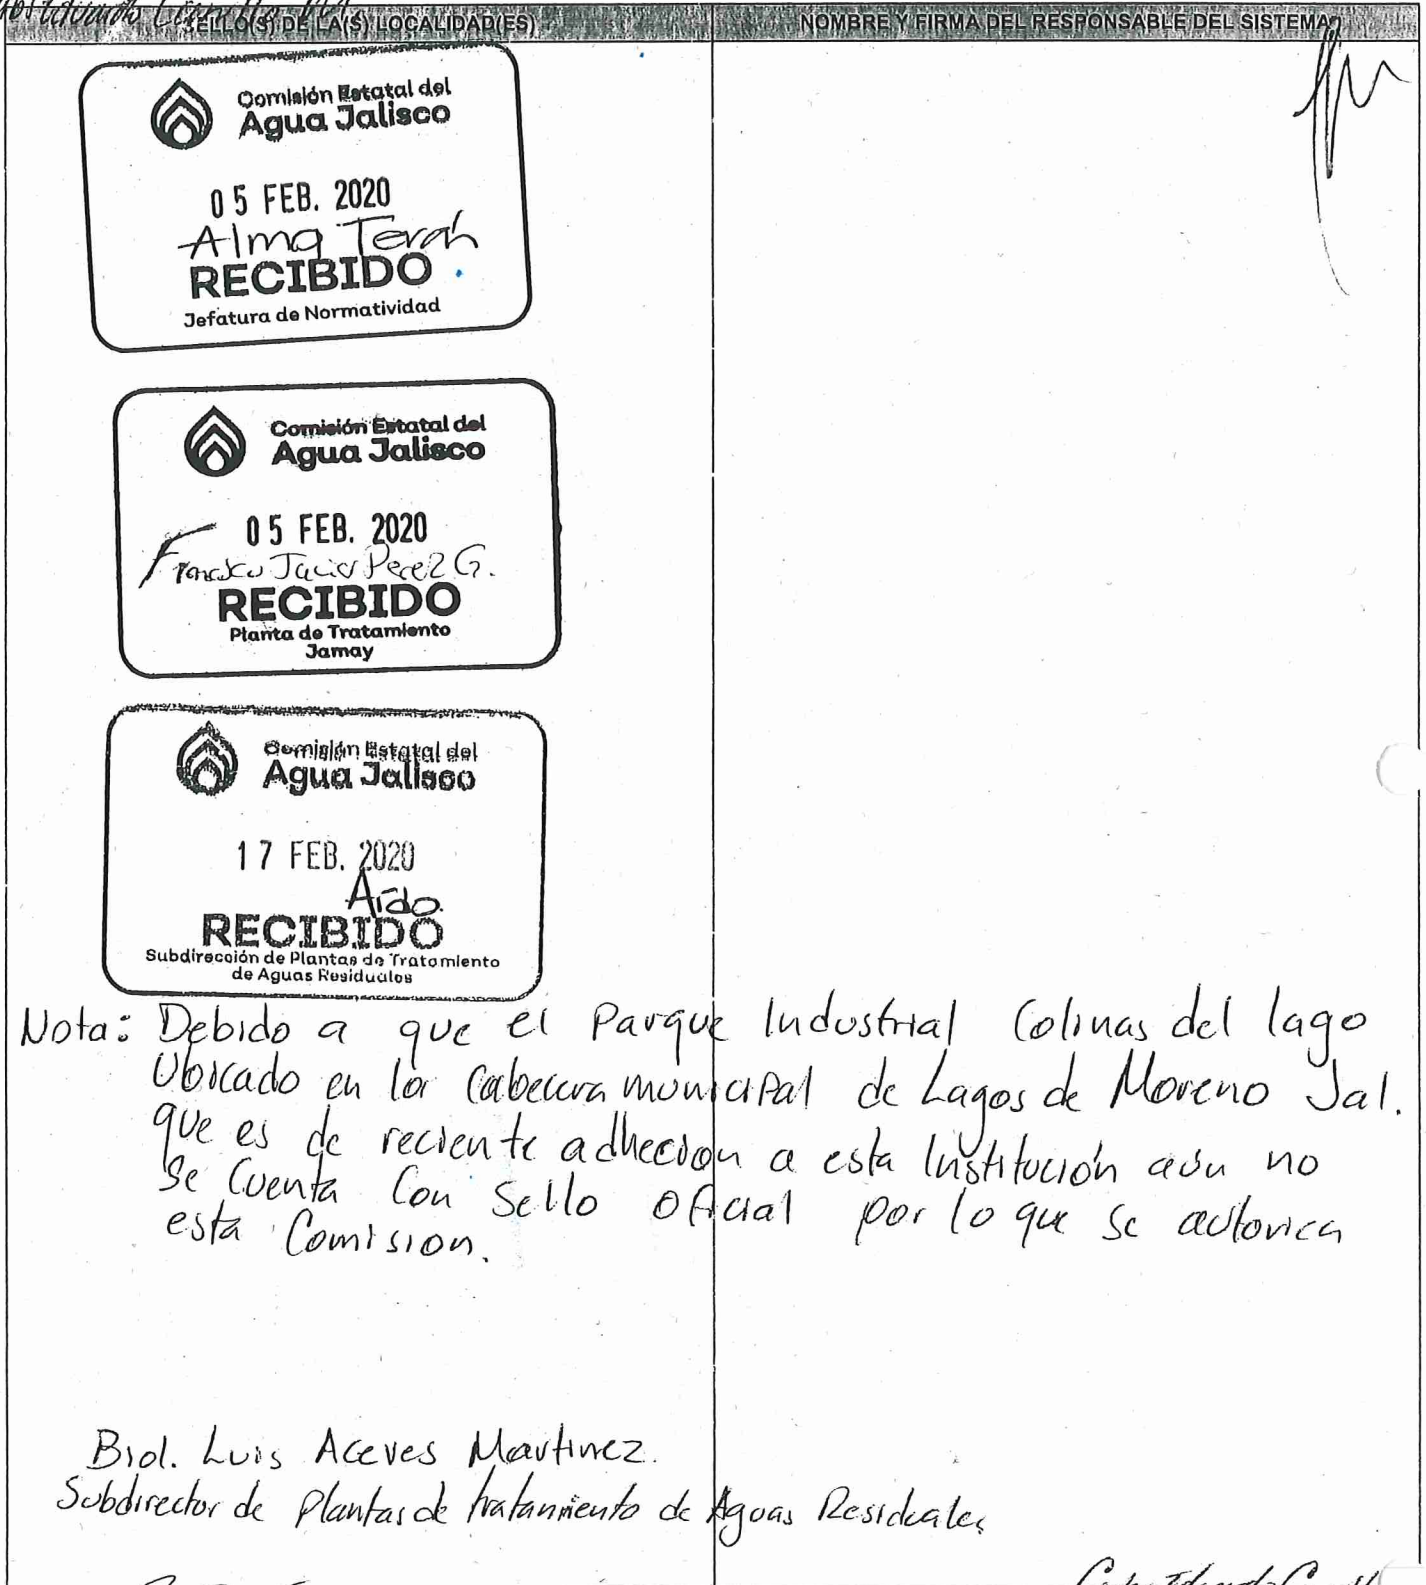 SELLO(S) DE LA(S) LOCALIDAD(ES)
NOMBRE Y FIRMA DEL RESPONSABLE DEL SISTEMA
Comisión Estatal del
Agua Jalisco
05 FEB. 2020
Alma Terán
RECIBIDO
Jefatura de Normatividad
Comisión Estatal del
Agua Jalisco
05 FEB. 2020
Francisco Javier Perez G.
RECIBIDO
Planta de Tratamiento
Jamay
Comisión Estatal del
Agua Jalisco
17 FEB. 2020
Aído.
RECIBIDO
Subdirección de Plantas de Tratamiento
de Aguas Residuales
Nota: Debido a que el Parque Industrial Colinas del lago
Ubicado en la Cabecera municipal de Lagos de Moreno Jal.
que es de reciente adhecion a esta Institución aún no
se Cuenta Con Sello oficial por lo que se autoriza
esta Comision.
Biol. Luis Aceves Martinez.
Subdirector de Plantas de tratamiento de Aguas Residuales